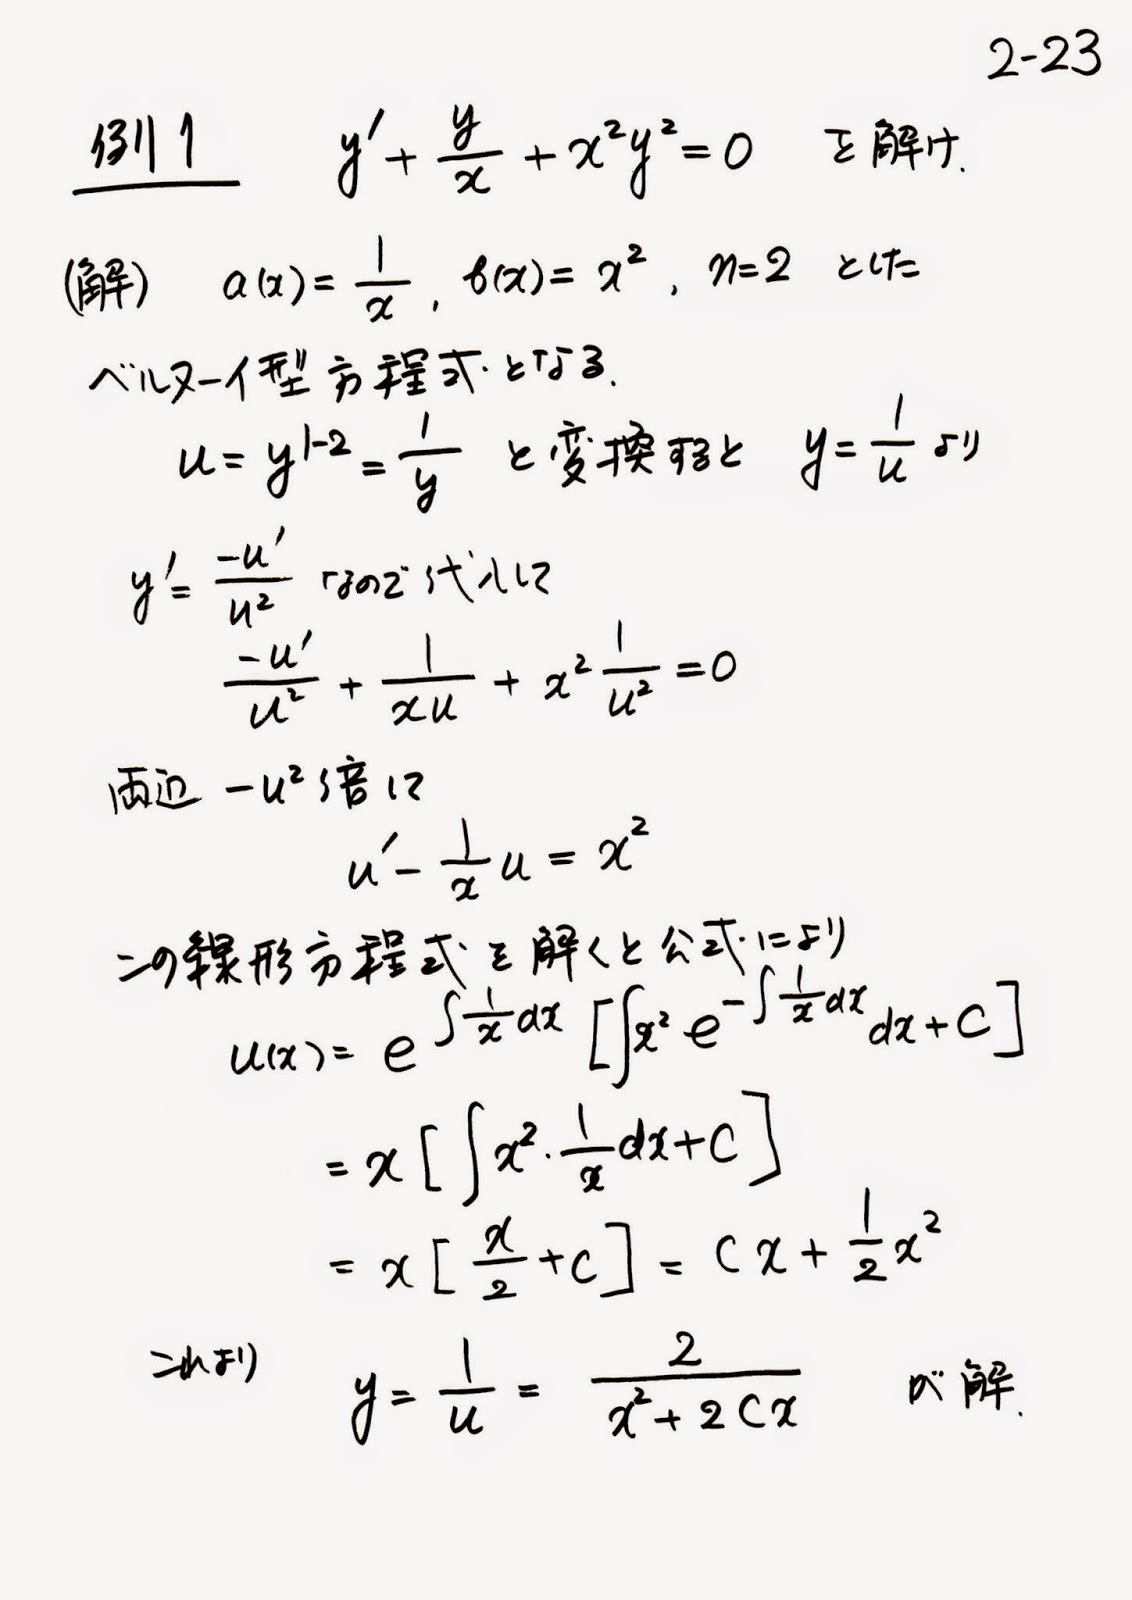 2-23
例1 y' + y/x + x²y² = 0 を解け.
(解) a(x) = 1/x, b(x) = x², n=2 とした
ベルヌーイ型方程式となる.
u = y^{1-2} = 1/y と変換すると y = 1/u より
y' = -u'/u² なので代入して
-u'/u² + 1/(xu) + x² 1/u² = 0
両辺 -u² 倍して
u' - 1/x u = x²
この線形方程式を解くと公式により
u(x) = e^{∫ 1/x dx} [∫x² e^{-∫ 1/x dx} dx + C]
= x [∫ x² · 1/x dx + C]
= x [x/2 + C] = Cx + 1/2 x²
これより y = 1/u = 2/(x² + 2Cx) が解.